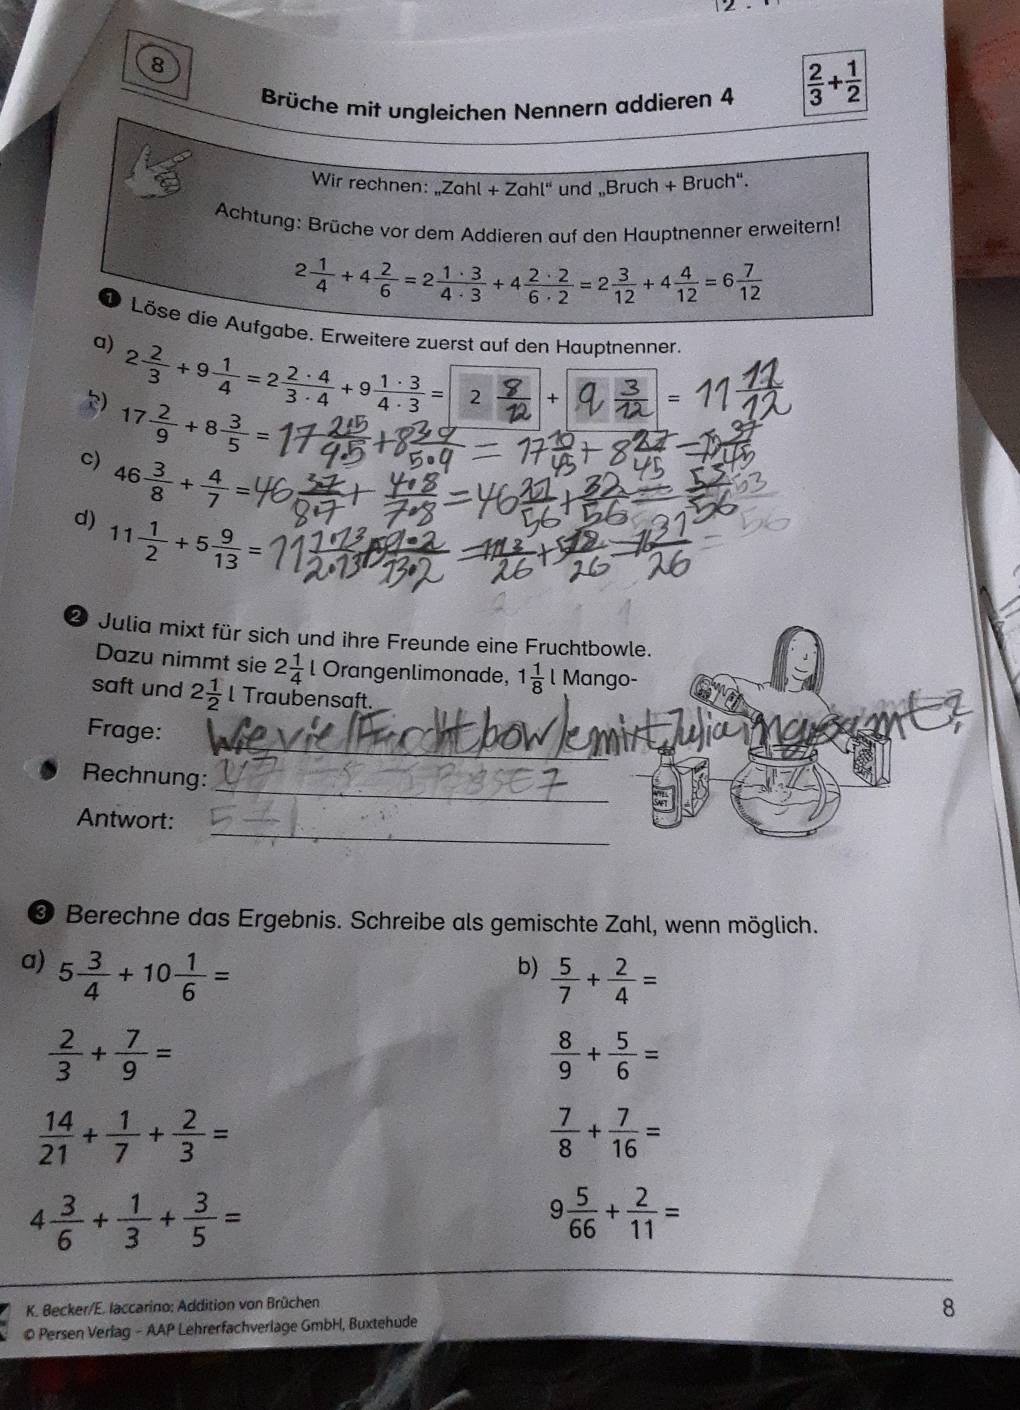 8
Brüche mit ungleichen Nennern addieren 4
2/3 + 1/2
Wir rechnen: „Zahl + Zahl“ und „Bruch + Bruch“.
Achtung: Brüche vor dem Addieren auf den Hauptnenner erweitern!
2 1/4 + 4 2/6 = 2 1·3/4·3 + 4 2·2/6·2 = 2 3/12 + 4 4/12 = 6 7/12
1 Löse die Aufgabe. Erweitere zuerst auf den Hauptnenner.
a) 2 2/3 + 9 1/4 = 2 2·4/3·4 + 9 1·3/4·3 = 2 8/12 + 9 3/12 = 11 11/12
b) 17 2/9 + 8 3/5 = 17 2·5/9·5 + 8 3·9/5·9 = 17 10/45 + 8 27/45 =
c) 46 3/8 + 4/7 = 46 3·7/8·7 + 4·8/7·8 = 46 21/56 + 32/56 = 53/56
d) 11 1/2 + 5 9/13 = 11 1·13/2·13 + 5 9·2/13·2 =
2 Julia mixt für sich und ihre Freunde eine Fruchtbowle.
Dazu nimmt sie 2 1/4 l Orangenlimonade, 1 1/8 l Mango-
saft und 2 1/2 l Traubensaft.
Frage: Wie viel Frchtbowle mixt Julia
Rechnung:
Antwort:
APFEL
SAFT
3 Berechne das Ergebnis. Schreibe als gemischte Zahl, wenn möglich.
a) 5 3/4 + 10 1/6 =
b) 5/7 + 2/4 =
2/3 + 7/9 =
8/9 + 5/6 =
14/21 + 1/7 + 2/3 =
7/8 + 7/16 =
4 3/6 + 1/3 + 3/5 =
9 5/66 + 2/11 =
K. Becker/E. Iaccarino: Addition von Brüchen
© Persen Verlag – AAP Lehrerfachverlage GmbH, Buxtehude
8